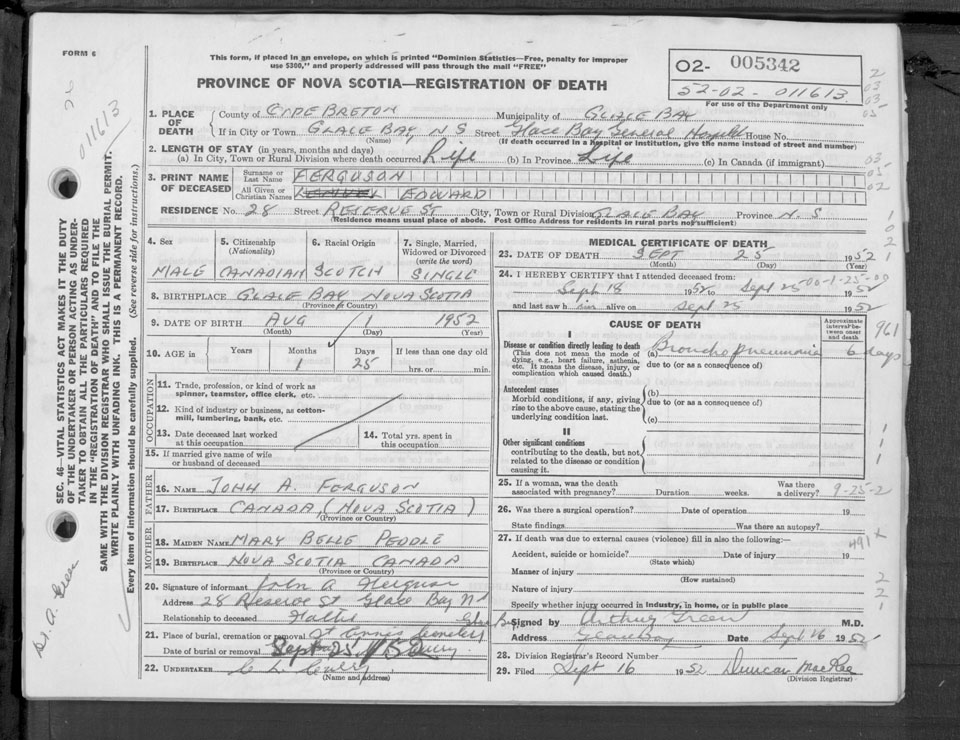 FORM 6
This form, if placed in an envelope, on which is printed "Dominion Statistics—Free, penalty for improper
use $300," and properly addressed will pass through the mail "FREE"
PROVINCE OF NOVA SCOTIA—REGISTRATION OF DEATH
02- 005342
52-02-011613
For use of the Department only
011613
SEC. 46—VITAL STATISTICS ACT MAKES IT THE DUTY
OF THE UNDERTAKER OR PERSON ACTING AS UNDER-
TAKER TO OBTAIN ALL THE PARTICULARS REQUIRED
IN THE "REGISTRATION OF DEATH" AND TO FILE THE
SAME WITH THE DIVISION REGISTRAR WHO SHALL ISSUE THE BURIAL PERMIT.
WRITE PLAINLY WITH UNFADING INK. THIS IS A PERMANENT RECORD.
Every item of information should be carefully supplied. (See reverse side for instructions.)
1. PLACE OF DEATH
County of CAPE BRETON Municipality of GLACE BAY
If in City or Town GLACE BAY, N S Street Glace Bay General Hospital House No.
(Name) (If death occurred in a hospital or institution, give the name instead of street and number)
2. LENGTH OF STAY (in years, months and days)
(a) In City, Town or Rural Division where death occurred Life (b) In Province Life (c) In Canada (if immigrant)
3. PRINT NAME OF DECEASED
Surname or Last Name FERGUSON
All Given or Christian Names EDWARD
RESIDENCE No. 28 Street RESERVE ST City, Town or Rural Division GLACE BAY Province N. S
(Residence means usual place of abode. Post Office Address for residents in rural parts not sufficient)
4. Sex 5. Citizenship (Nationality) 6. Racial Origin 7. Single, Married, Widowed or Divorced (write the word)
MALE CANADIAN SCOTCH SINGLE
8. BIRTHPLACE GLACE BAY NOVA SCOTIA
(Province or Country)
9. DATE OF BIRTH AUG 1 1952
(Month) (Day) (Year)
10. AGE in Years Months Days If less than one day old
1 25 hrs. or min.
OCCUPATION
11. Trade, profession, or kind of work as
spinner, teamster, office clerk, etc.
12. Kind of industry or business, as cotton-
mill, lumbering, bank, etc.
13. Date deceased last worked
at this occupation
14. Total yrs. spent in
this occupation
15. If married give name of wife
or husband of deceased
FATHER
16. NAME JOHN A. FERGUSON
17. BIRTHPLACE CANADA (NOVA SCOTIA)
(Province or Country)
MOTHER
18. MAIDEN NAME MARY BELLE PEDDLE
19. BIRTHPLACE NOVA SCOTIA CANADA
(Province or Country)
20. Signature of informant John A Ferguson
Address 28 Reserve St Glace Bay
Relationship to deceased Father
21. Place of burial, cremation or removal
Date of burial or removal Sept 25/52
22. UNDERTAKER
(Name and address)
MEDICAL CERTIFICATE OF DEATH
23. DATE OF DEATH SEPT 25 1952
(Month) (Day) (Year)
24. I HEREBY CERTIFY that I attended deceased from:
Sept 18 1952 to Sept 25 1952
and last saw him alive on Sept 25 1952
CAUSE OF DEATH
Approximate interval between onset and death
I
Disease or condition directly leading to death
(This does not mean the mode of
dying, e.g., heart failure, asthenia,
etc. It means the disease, injury, or
complication which caused death.)
(a) Broncho pneumonia 6 days
due to (or as a consequence of)
Antecedent causes
Morbid conditions, if any, giving
rise to the above cause, stating the
underlying condition last.
(b)
due to (or as a consequence of)
(c)
II
Other significant conditions
contributing to the death, but not
related to the disease or condition
causing it.
961
25. If a woman, was the death Was there
associated with pregnancy? Duration weeks. a delivery?
9-25-2
26. Was there a surgical operation? Date of operation 19
State findings Was there an autopsy?
27. If death was due to external causes (violence) fill in also the following:—
491x
Accident, suicide or homicide? Date of injury 19
(State which)
Manner of injury
(How sustained)
Nature of injury
Specify whether injury occurred in industry, in home, or in public place
Signed by Arthur Green M.D.
Address Glace Bay Date Sept 26 1952
28. Division Registrar's Record Number
29. Filed Sept 16 1952 Duncan MacRae
(Division Registrar)
Dr. A. Green